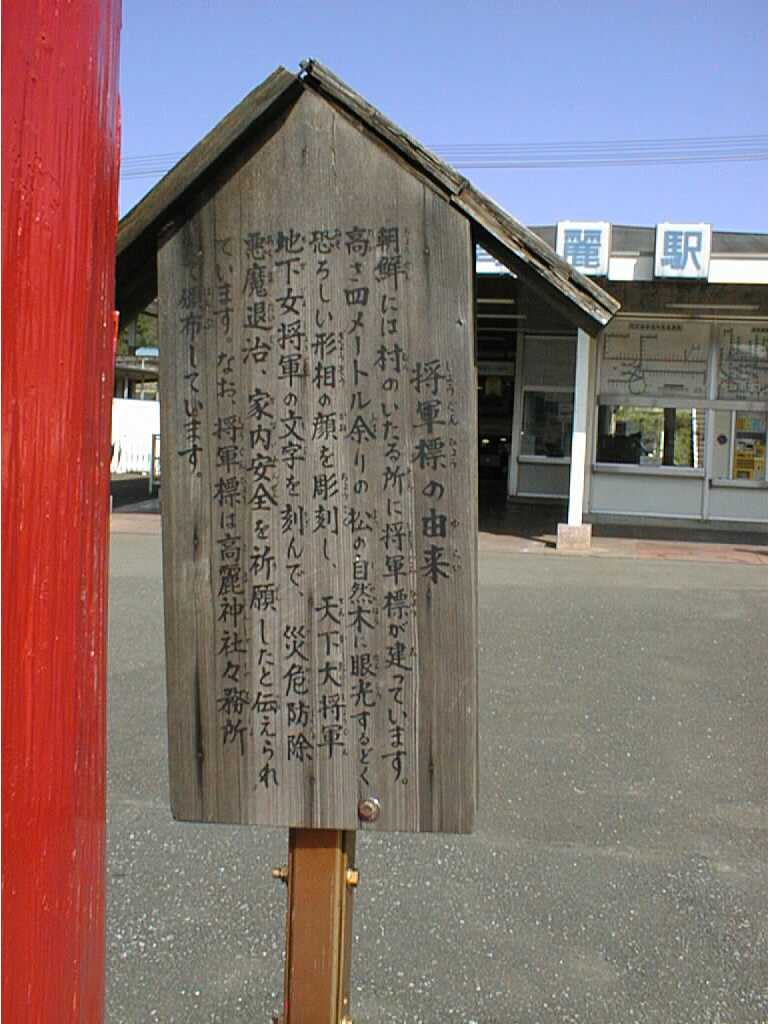 将軍標の由来
朝鮮には村のいたる所に将軍標が建っています。
高さ四メートル余りの松の自然木に眼光するどく
恐ろしい形相の顔を彫刻し、天下大将軍
地下女将軍の文字を刻んで、災危防除
悪魔退治、家内安全を祈願したと伝えられ
ています。なお、将軍標は高麗神社々務所
で頒布しています。
麗駅